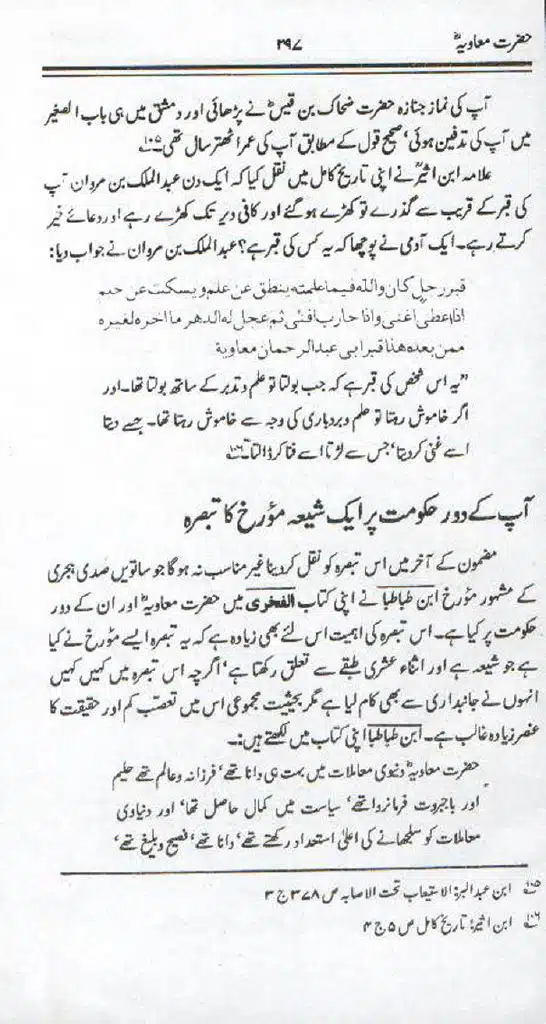 حضرت معاویہؓ ۲۹۷
آپ کی نماز جنازہ حضرت ضحاک بن قیسؓ نے پڑھائی اور دمشق میں ہی باب الصغیر
میں آپ کی تدفین ہوئی‘ صحیح قول کے مطابق آپ کی عمر اٹھتر سال تھی۔ ۱۰۵
علامہ ابن اثیرؒ نے اپنی تاریخ کامل میں نقل کیا کہ ایک دن عبدالملک بن مروان آپ
کی قبر کے قریب سے گذرے تو کھڑے ہو گئے اور کافی دیر تک کھڑے رہے اور دعائے خیر
کرتے رہے۔ ایک آدمی نے پوچھا کہ یہ کس کی قبر ہے؟ عبدالملک بن مروان نے جواب دیا:
قبر رجل كان والله فيما علمته ينطق عن علم ويسكت عن حلم
اذا اعطى اغنى واذا حارب افنى ثم عجل له الدهر ما اخره لغيره
ممن بعده هذا قبر ابى عبدالرحمان معاوية
”یہ اس شخص کی قبر ہے کہ جب بولتا تو علم و تدبر کے ساتھ بولتا تھا۔ اور
اگر خاموش رہتا تو حلم و بردباری کی وجہ سے خاموش رہتا تھا۔ جسے دیتا
اسے غنی کر دیتا‘ جس سے لڑتا اسے فنا کر ڈالتا۔ ۱۰۶
آپ کے دور حکومت پر ایک شیعہ مؤرخ کا تبصرہ
مضمون کے آخر میں اس تبصرہ کو نقل کر دینا غیر مناسب نہ ہوگا جو ساتویں صدی ہجری
کے مشہور مؤرخ ابن طباطبا نے اپنی کتاب الفخری میں حضرت معاویہؓ اور ان کے دور
حکومت پر کیا ہے۔ اس تبصرہ کی اہمیت اس لئے بھی زیادہ ہے کہ یہ تبصرہ ایسے مؤرخ نے کیا
ہے جو شیعہ ہے اور اثناء عشری طبقے سے تعلق رکھتا ہے‘ اگرچہ اس تبصرہ میں کہیں کہیں
انہوں نے جانبداری سے بھی کام لیا ہے مگر بحیثیت مجموعی اس میں تعصّب کم اور حقیقت کا
عنصر زیادہ غالب ہے۔ ابن طباطبا اپنی کتاب میں لکھتے ہیں:۔
حضرت معاویہؓ دنیوی معاملات میں بہت ہی دانا تھے‘ فرزانہ و عالم تھے حلیم
اور باجبروت فرمانروا تھے‘ سیاست میں کمال حاصل تھا‘ اور دنیاوی
معاملات کو سلجھانے کی اعلیٰ استعداد رکھتے تھے‘ دانا تھے‘ فصیح و بلیغ تھے‘
۱۰۵ ابن عبدالبر: الاستیعاب تحت الاصابہ ص ۳۷۸ ج ۳
۱۰۶ ابن اثیر: تاریخ کامل ص ۵ ج ۴